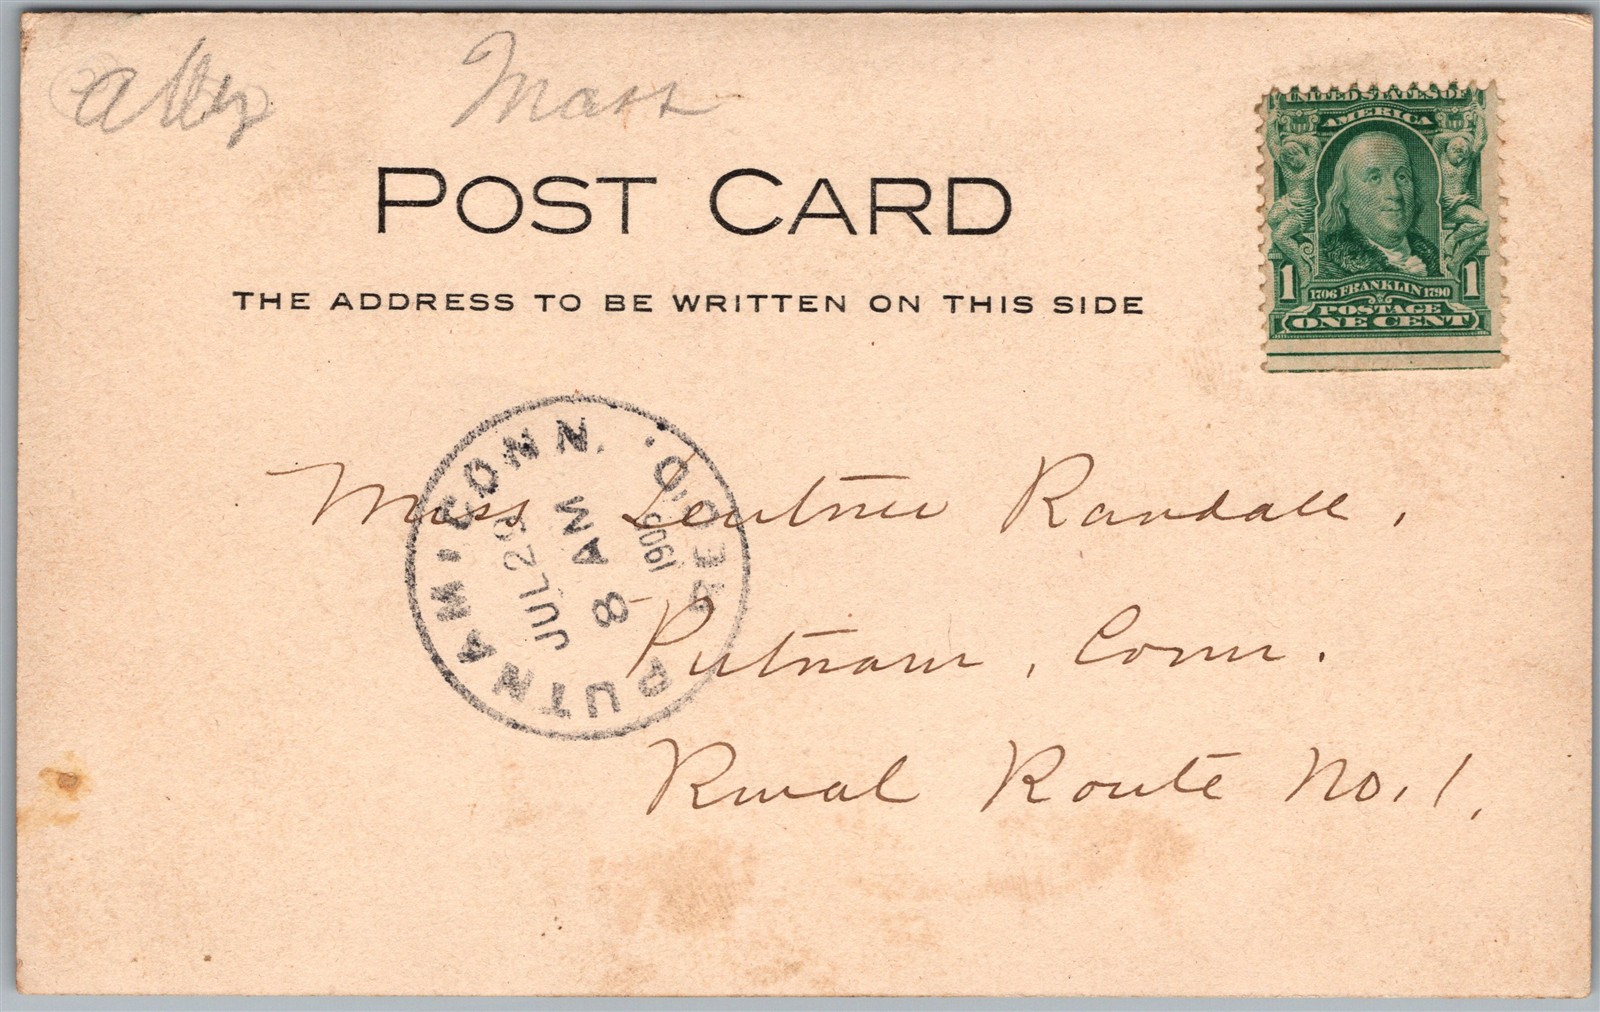 Mass
POST CARD
THE ADDRESS TO BE WRITTEN ON THIS SIDE
UNITED STATES OF
AMERICA
1 1706 FRANKLIN 1790 1
POSTAGE
ONE CENT
PUTNAM, CONN. REC'D.
JUL 29
8 AM
Miss Randall,
Putnam, Conn.
Rural Route No. 1,